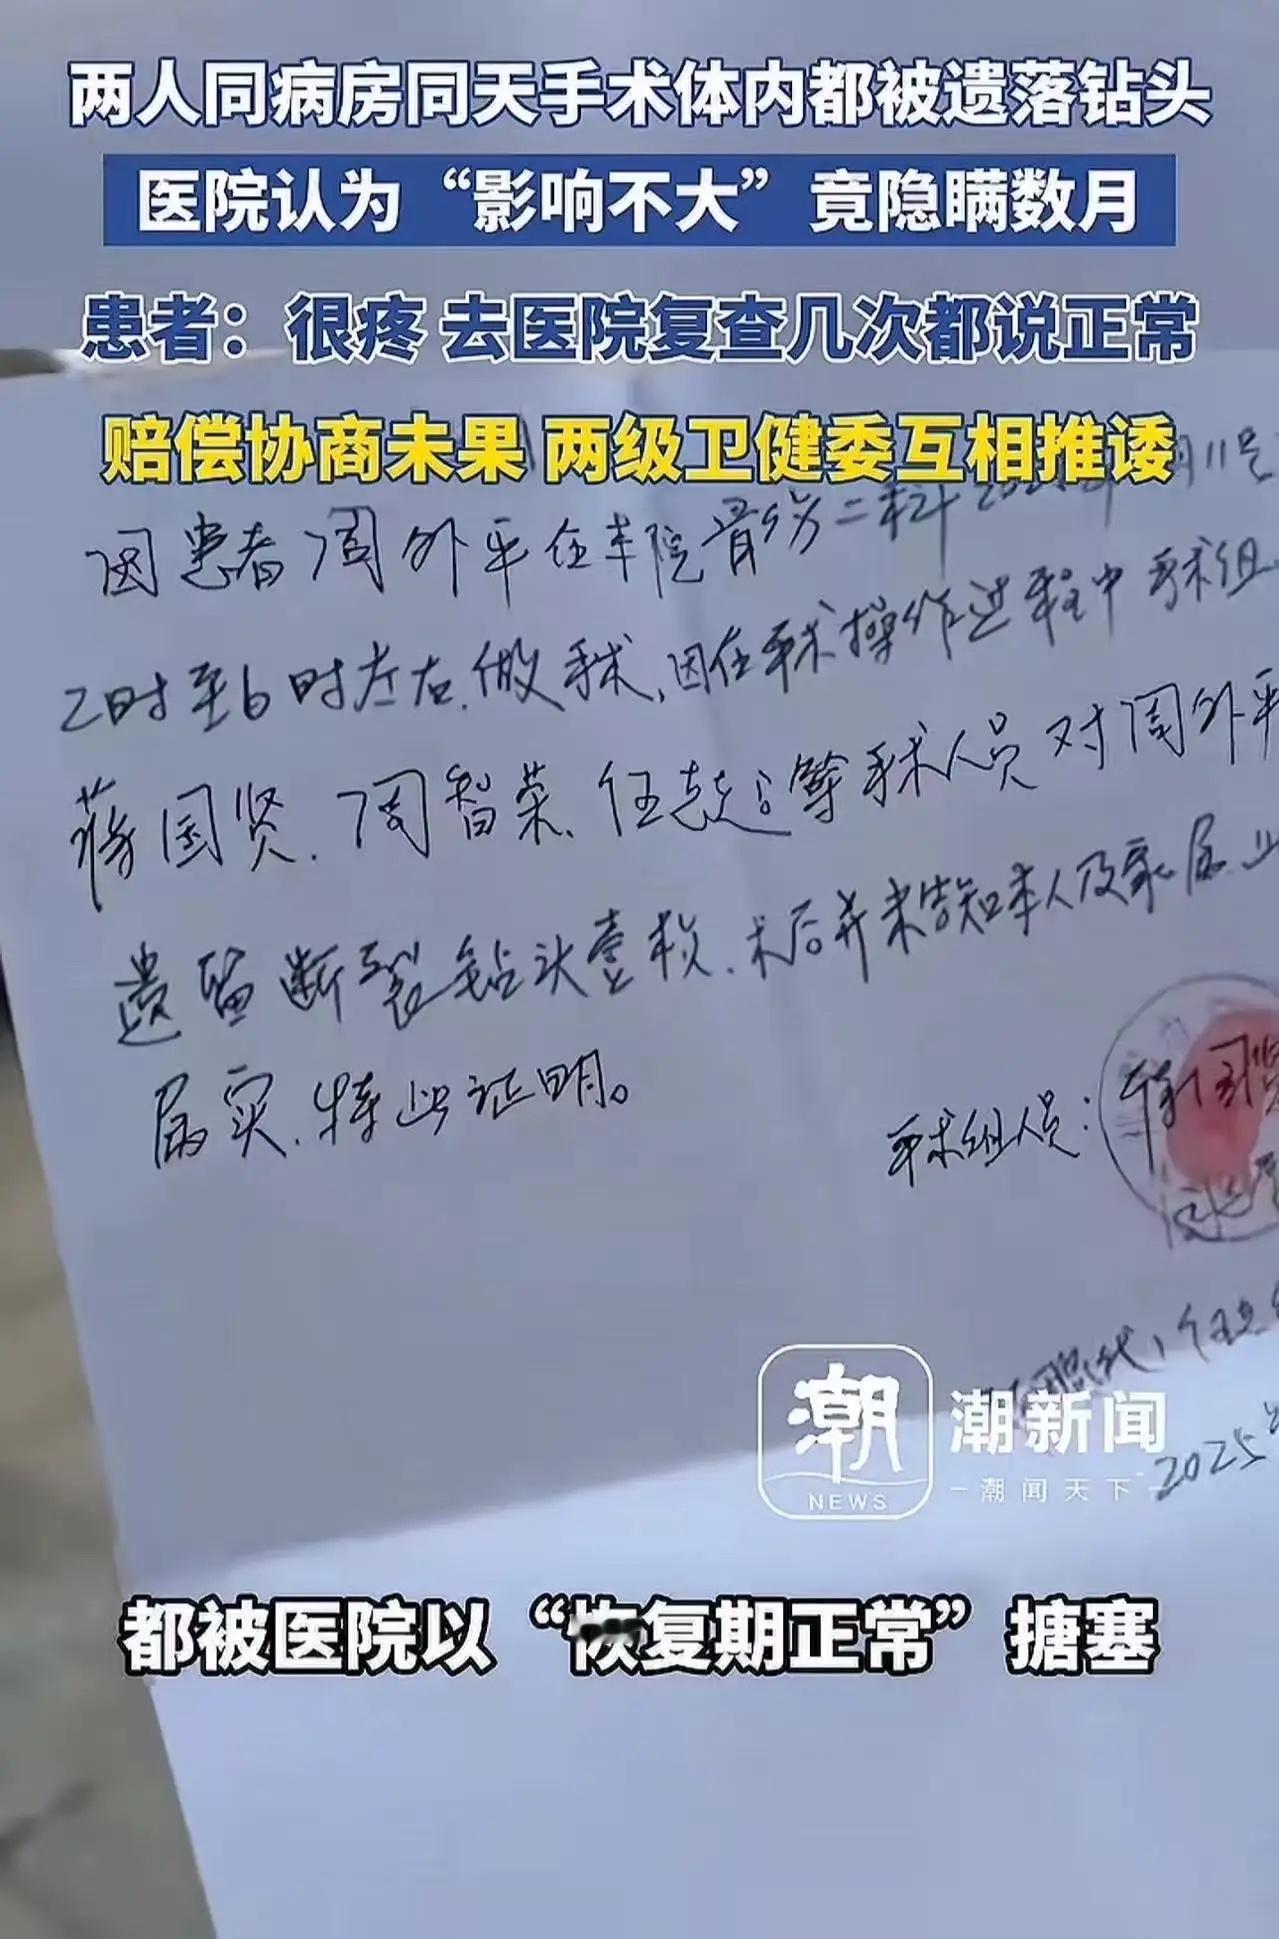 两人同病房同天手术体内都被遗落钻头
医院认为“影响不大”竟隐瞒数月
患者：很疼 去医院复查几次都说正常
赔偿协商未果 两级卫健委互相推诿
因患者周外平在本院骨伤二科 月11号
2时至6时左右.做手术,因在手术操作过程中手术组
蒋国贤.周智荣.任 等手术人员对周外平
遗留断裂钻头壹枚.术后并未告知本人及家属.
属实.特此证明。
手术组人员：
潮
NEWS
潮新闻
潮闻天下
2025
都被医院以“恢复期正常”搪塞